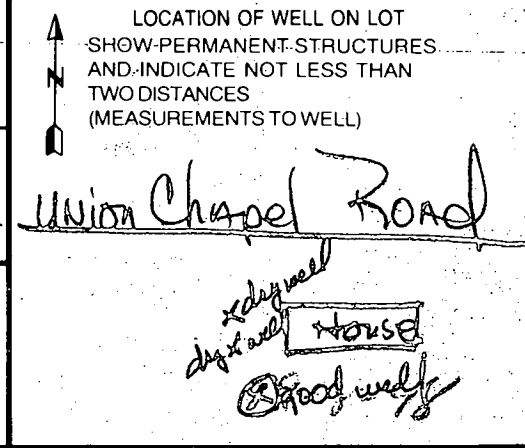 LOCATION OF WELL ON LOT
SHOW PERMANENT STRUCTURES
N AND INDICATE NOT LESS THAN
TWO DISTANCES
(MEASUREMENTS TO WELL)
Union Chapel Road
x dry well
dry x well
House
X good well